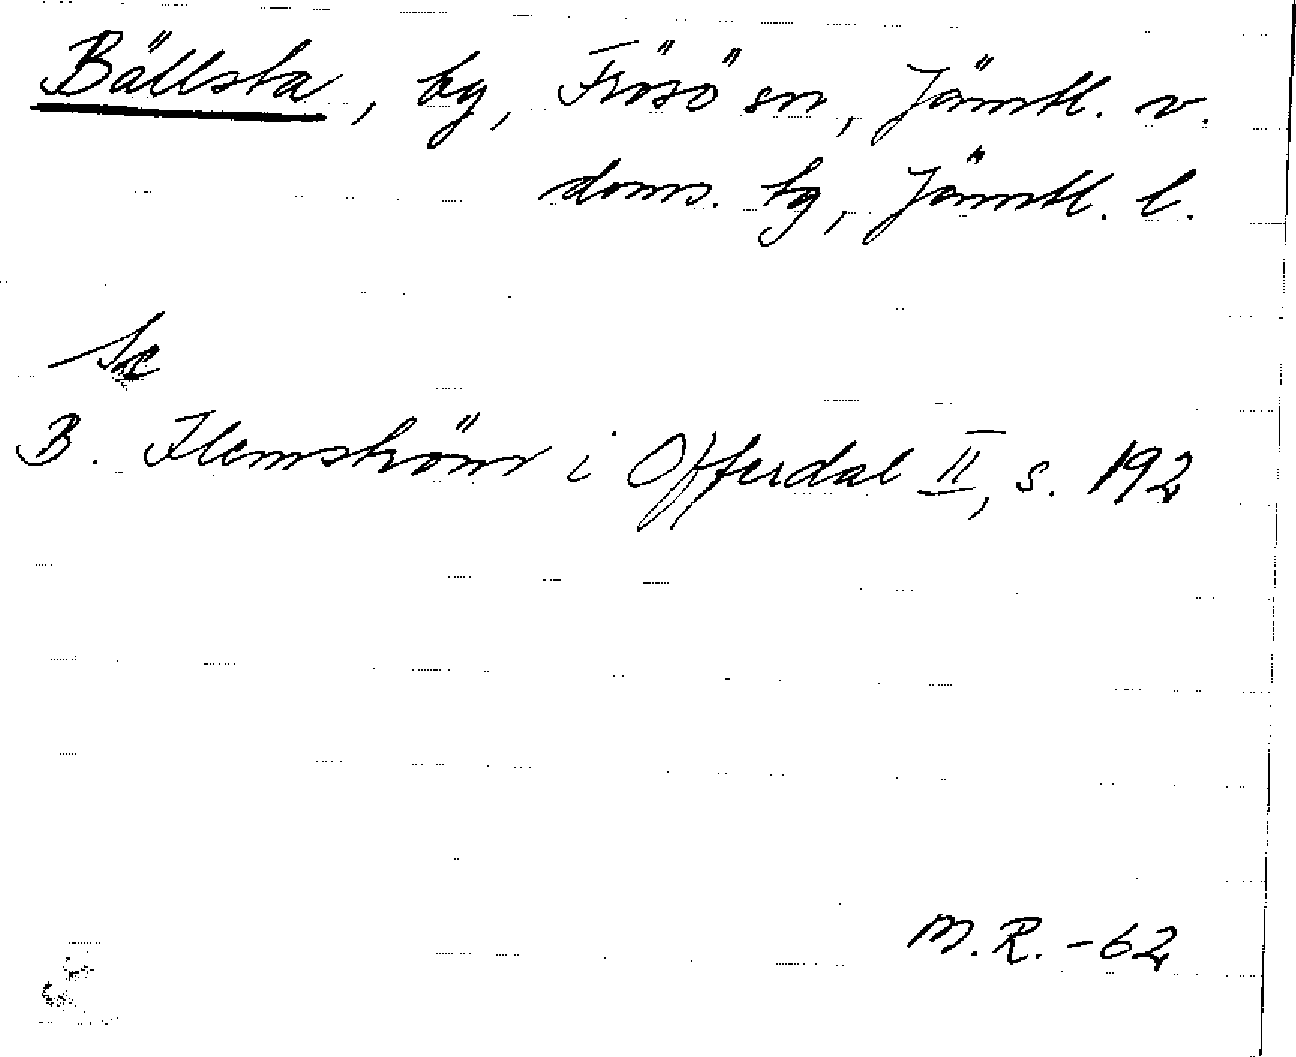 Bällsta, by, Frösö sn, Jämtl. v.
doms. tg, Jämtl. l.
Se
B. Flemström i Offerdal II, s. 192
M.R. -62